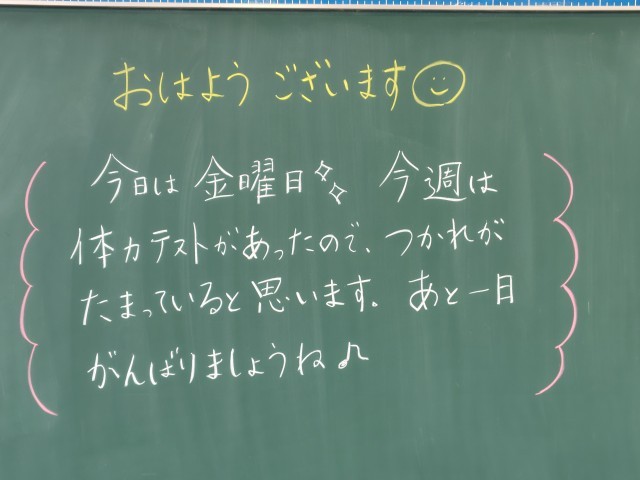 おはようございます☺
今日は 金曜日✧✧ 今週は
体力テストがあったので、つかれが
たまっていると思います。あと一日
がんばりましょうね♪